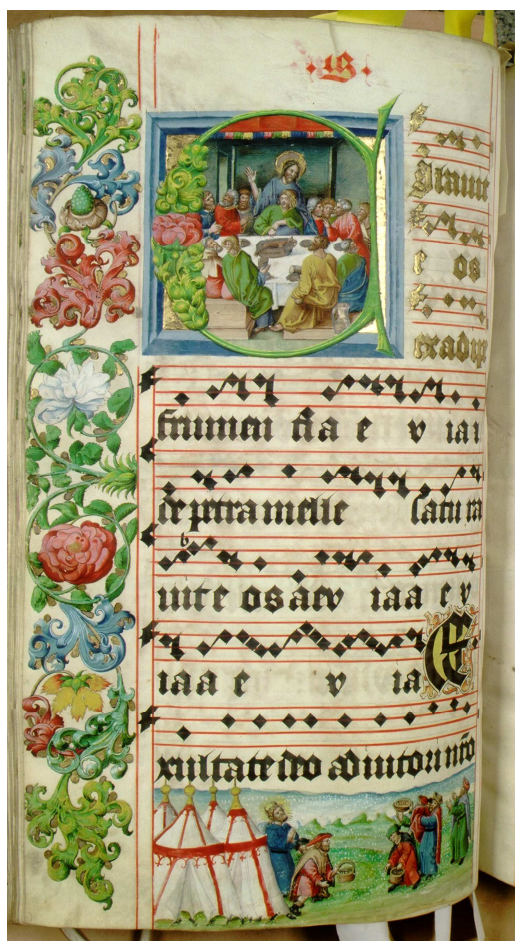 C
ibauit
e os
exadip
frumen ti a e v
de petra melle satu ra
uit e os aev iaa e v
iaa e v ia E
xultate deo adiutori nr̄o